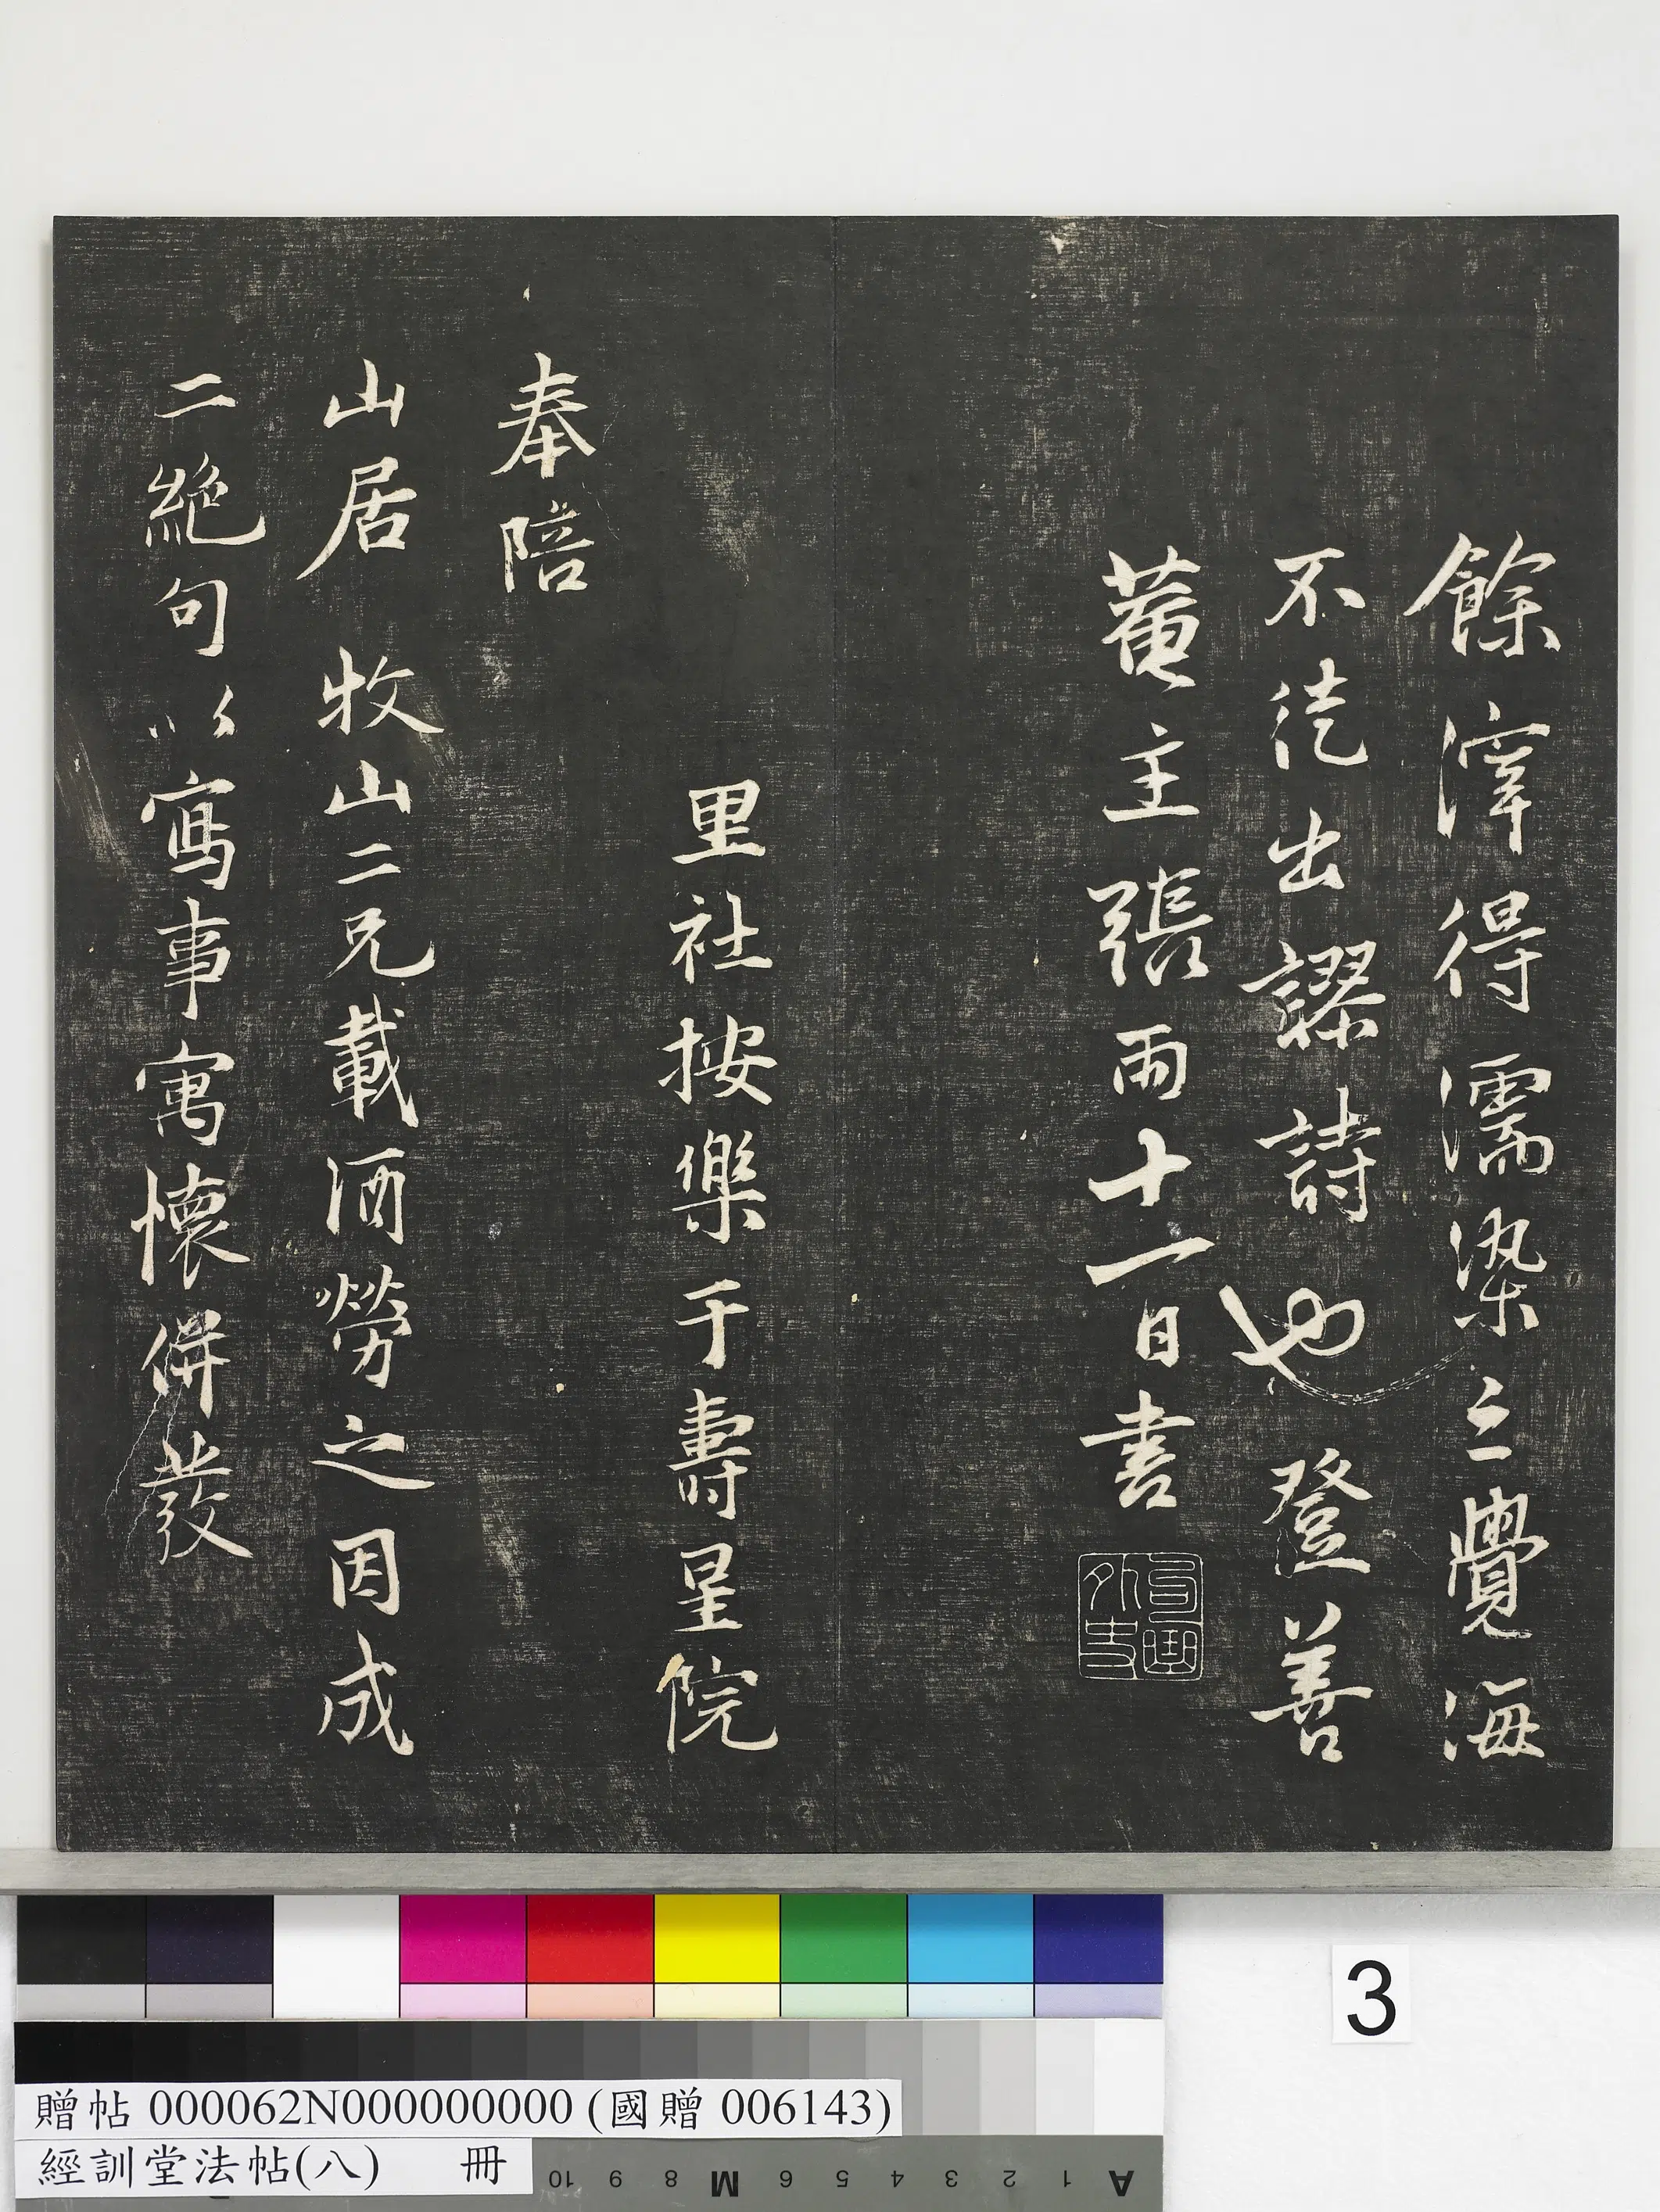 餘滓得濡染之覺海
不徒出謬詩也登善
菴主張雨十一日書
里社按樂于壽星院
奉陪
山居牧山二兄載酒勞之因成
二絕句以寫事寓懷併發
3
贈帖 000062N000000000 (國贈 006143)
經訓堂法帖(八) 冊
10 9 8 M 6 5 4 3 2 1 A